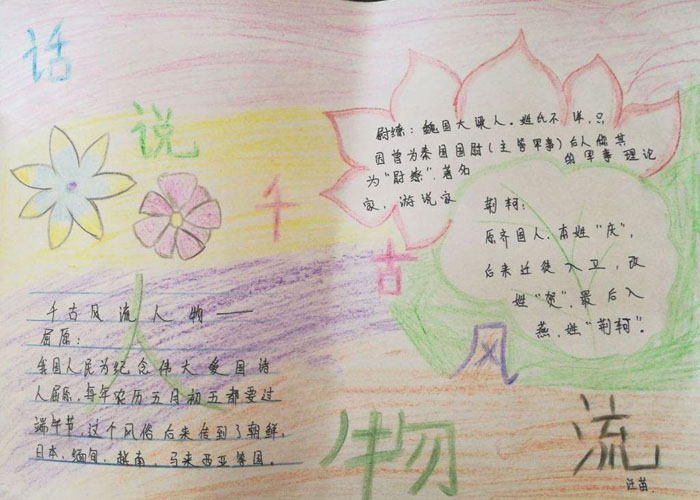 话
说
千
古
风
流
人
物
尉缭：魏国大梁人，姓氏不详，只
因曾为秦国国尉（主管军事）后人偁其
为“尉缭”．著名的军事理论
家，游说家
荆轲：
原齐国人，本姓“庆”，
后来迁徒入卫，改
姓“贺”，最后入
燕，姓“荆轲”。
千古风流人物——
屈原：
我国人民为纪念伟大爱国诗
人屈原，每年农历五月初五都要过
端午节，这个风俗后来传到了朝鲜，
日本、缅甸、越南、马来西亚等国。